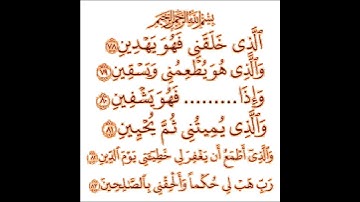 بِسْمِ اللَّهِ الرَّحْمَٰنِ الرَّحِيمِ
الَّذِي خَلَقَنِي فَهُوَ يَهْدِينِ ٧٨
وَالَّذِي هُوَ يُطْعِمُنِي وَيَسْقِينِ ٧٩
وَإِذَا ......... فَهُوَ يَشْفِينِ ٨٠
وَالَّذِي يُمِيتُنِي ثُمَّ يُحْيِينِ ٨١
وَالَّذِي أَطْمَعُ أَن يَغْفِرَ لِي خَطِيئَتِي يَوْمَ الدِّينِ ٨٢
رَبِّ هَبْ لِي حُكْمًا وَأَلْحِقْنِي بِالصَّالِحِينَ ٨٣